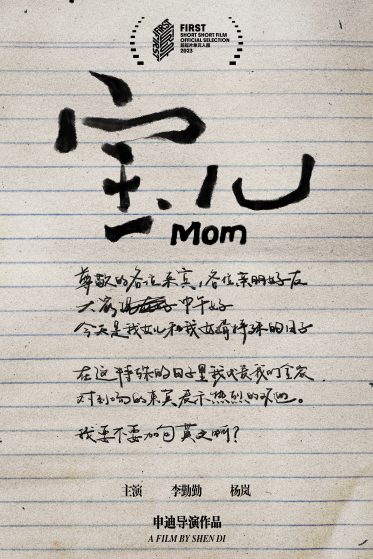 FIRST
SHORT SHORT FILM
OFFICIAL SELECTION
超短片单元入围
2023
宝儿
Mom
尊敬的各位来宾，各位亲朋好友
大家 中午好
今天是我女儿和我女婿特殊的日子
在这特殊的日子里我代表我们全家
对到场的来宾表示热烈的欢迎。
我要不要加句英文啊？
主演 李勤勤 杨岚
申迪导演作品
A FILM BY SHEN DI